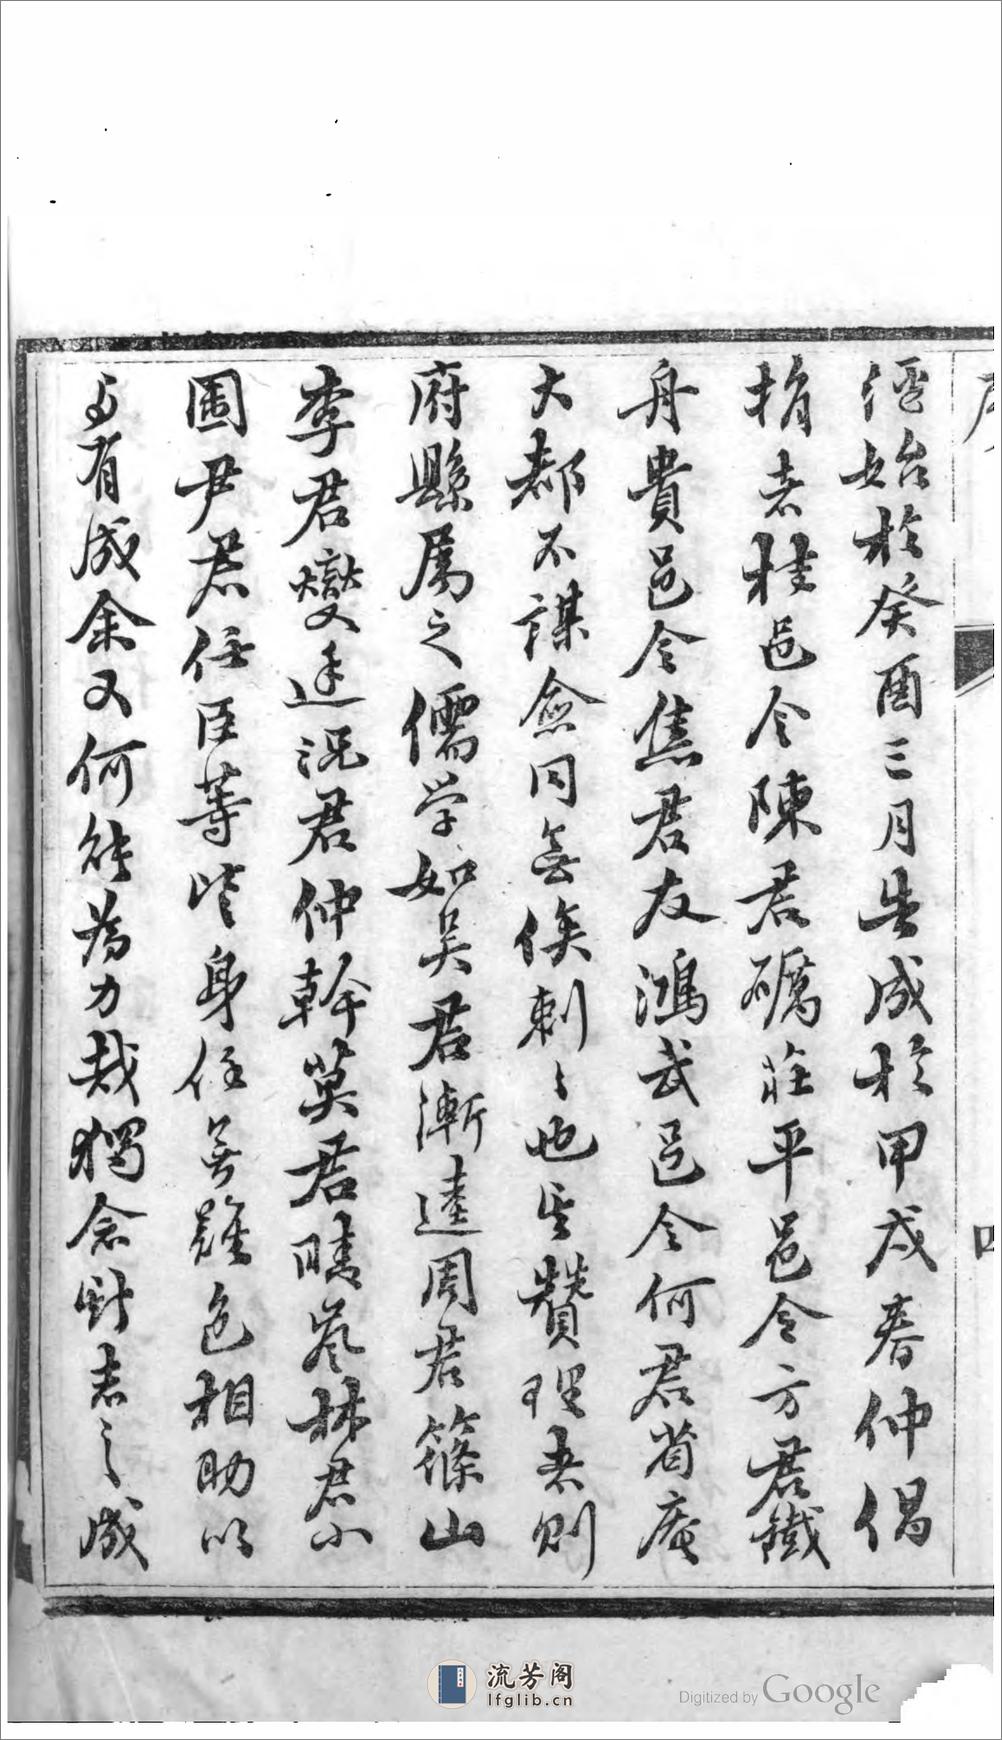 經始於癸酉三月告成於甲戌春仲倡
捐者桂邑令陳君礪莊平邑令方君鐵
舟貴邑令焦君友鴻武邑令何君莆庵
大都不謀僉同無俟刺刺也至贊理者則
府縣屬之儒學如吳君漸逵周君篠山
李君燮廷況君仲幹莫君晴峯林君小
圃尹君任臣等皆身任無難色相助以
有成余又何能為力哉獨念斯志之成
序
四
流芳阁
lfglib.cn
Digitized by Google